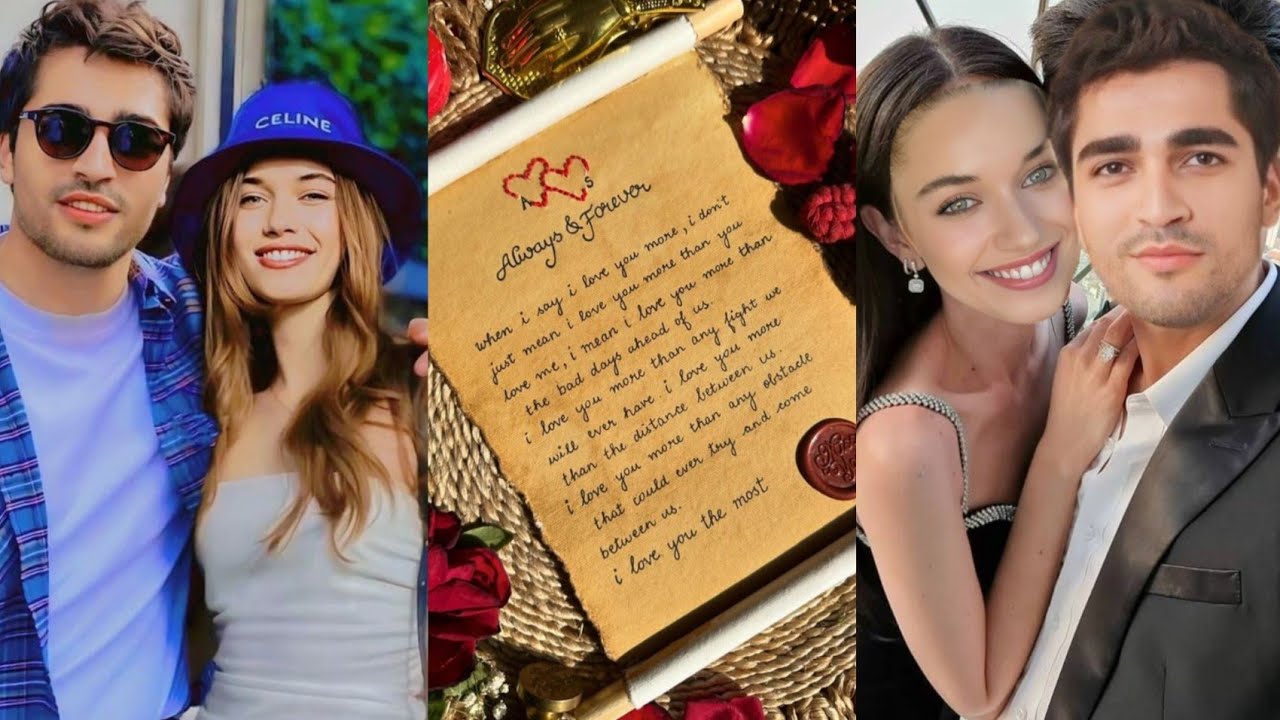 CELINE
A S
Always & Forever
when i say i love you more, i don't
just mean i love you more than you
love me, i mean i love you more than
the bad days ahead of us.
i love you more than any fight we
will ever have. i love you more
than the distance between us.
i love you more than any obstacle
that could ever try and come
between us.
i love you the most